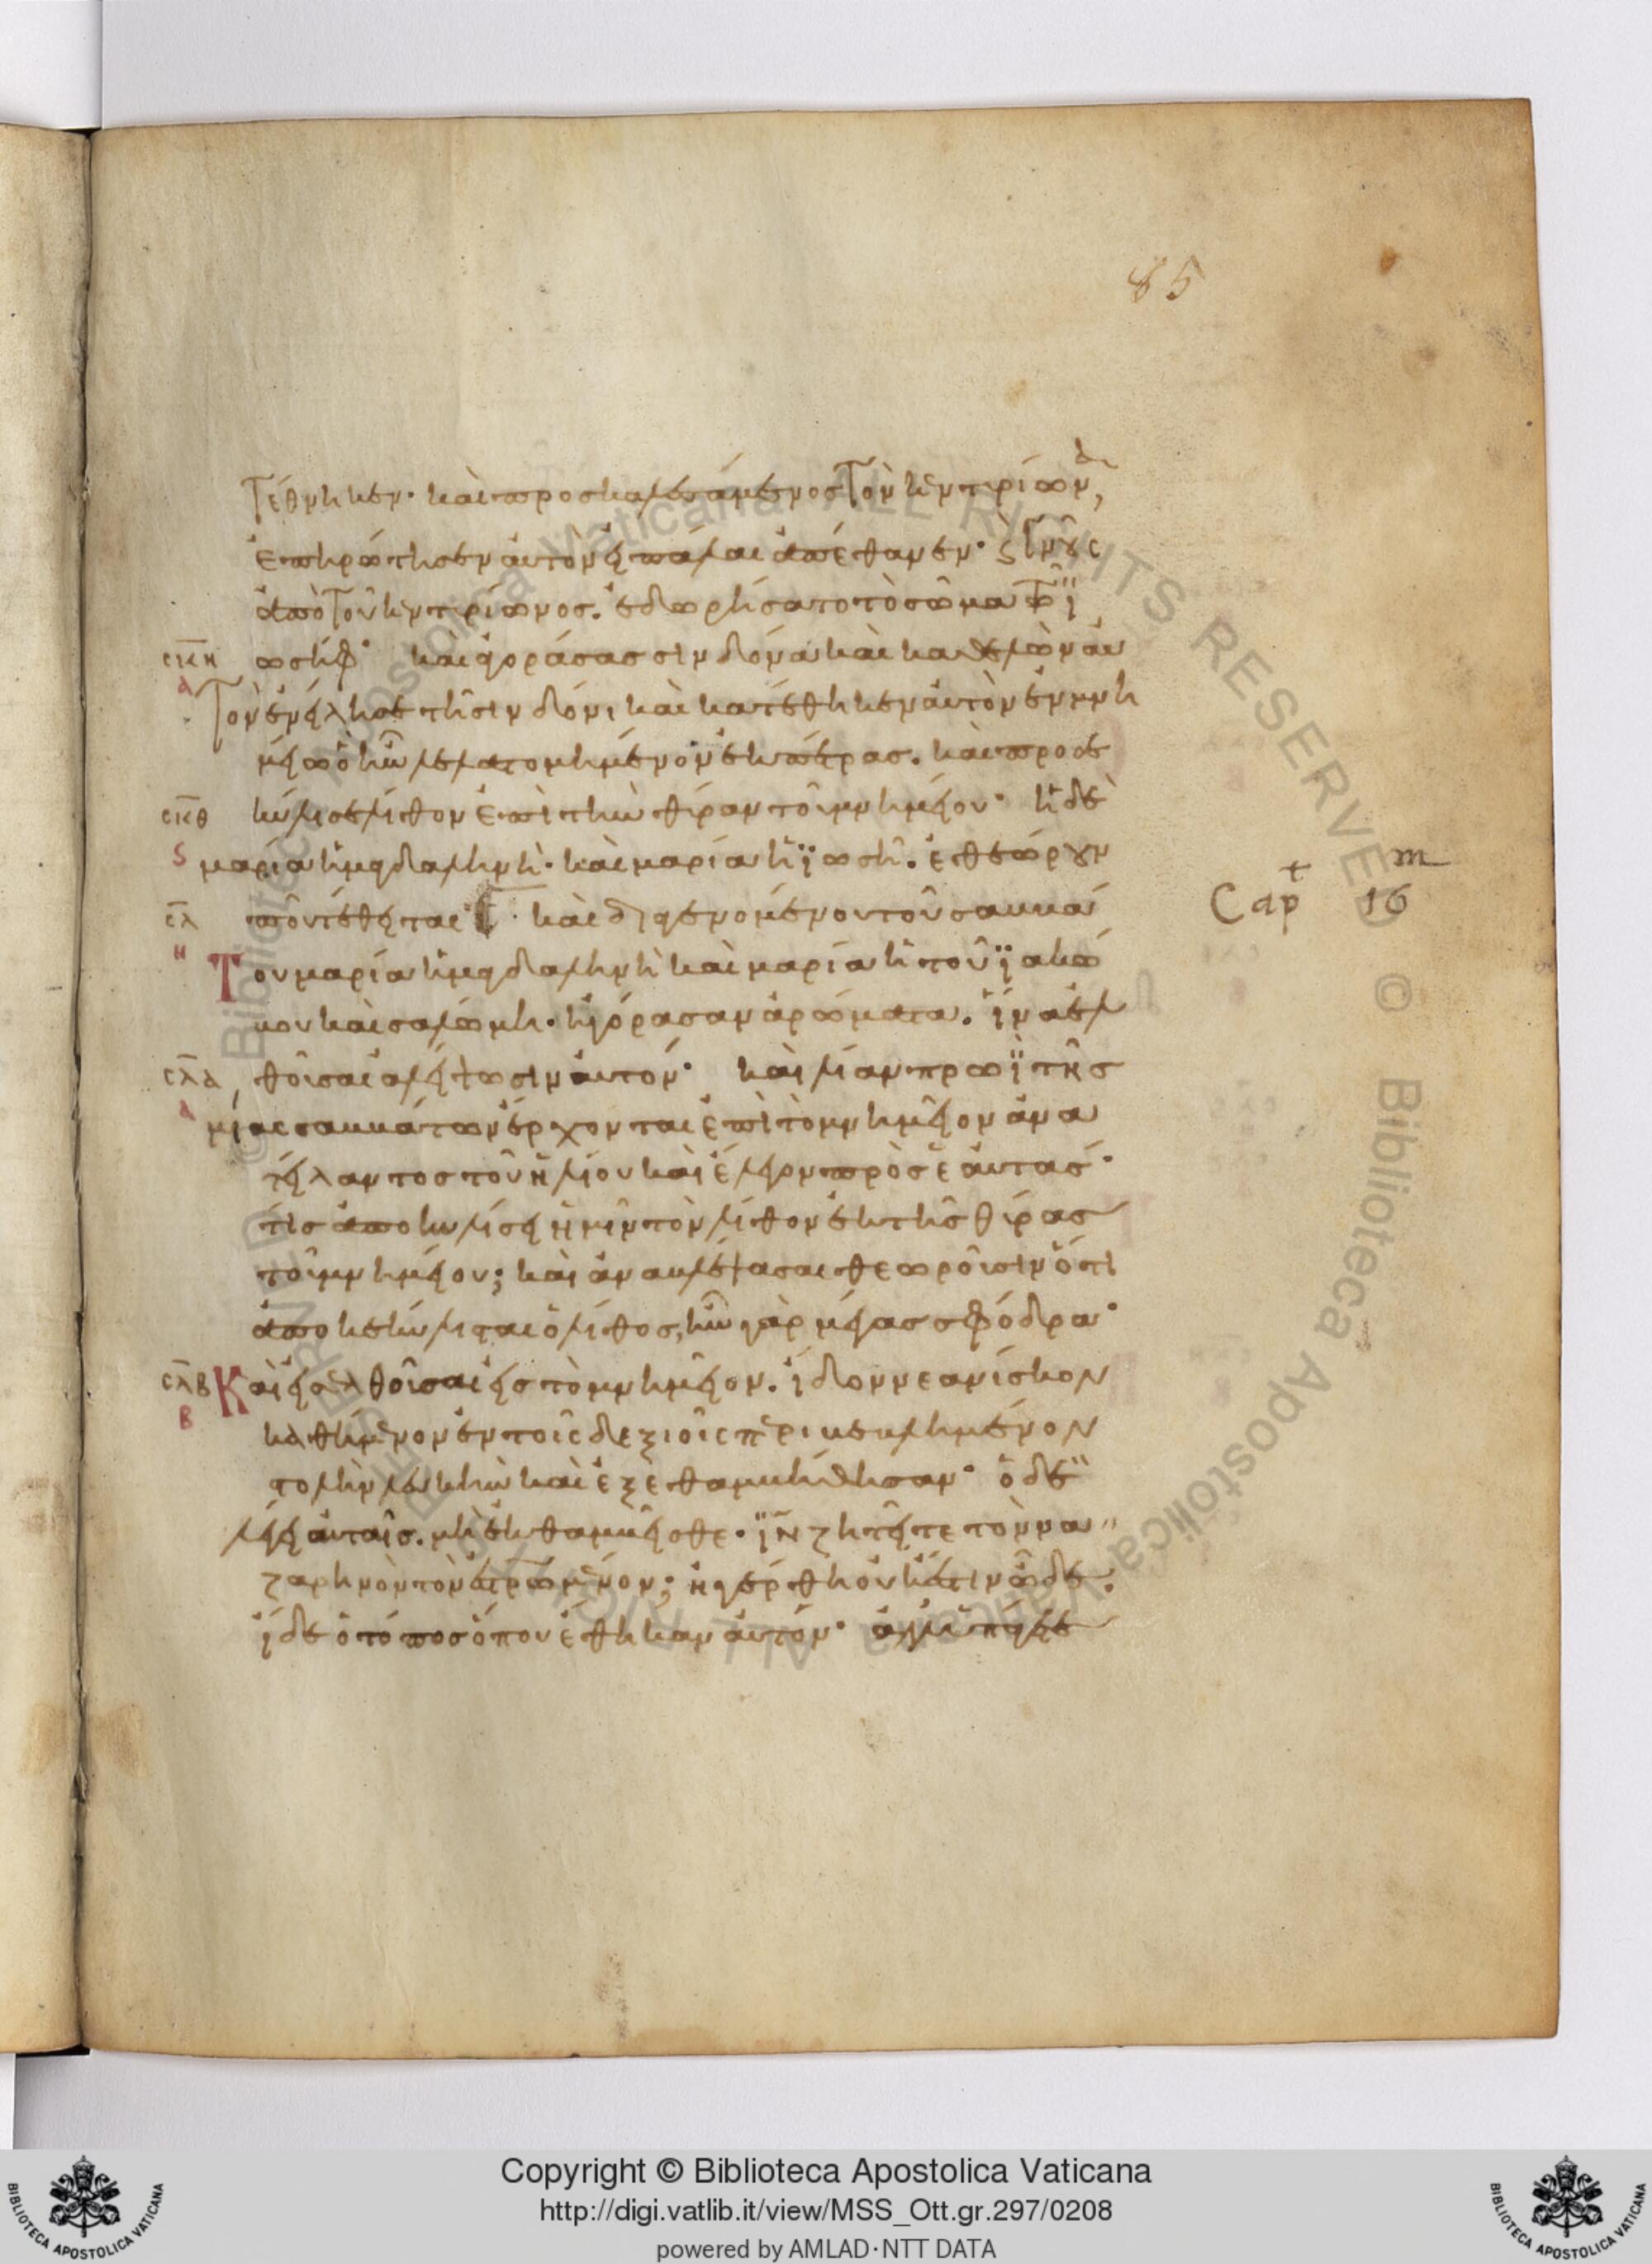 85
τέθνηκεν· καὶ προσκαλεσάμενος τὸν κεντυρίωνα,
ἐπηρώτησεν αὐτὸν εἰ πάλαι ἀπέθανεν· καὶ γνοὺς
ἀπὸ τοῦ κεντυρίωνος. ἐδωρήσατο τὸ σῶμα τῶ ϊ
σκη ωσήφ· καὶ ἀγοράσας σινδόνα καὶ καθελὼν αὐ
α τὸν ἐνείλησε τῆ σινδόνι καὶ κατέθηκεν αὐτὸν ἐν μνη
μείω ὃ ἦν λελατομημένον ἐκ πέτρας. καὶ προσε
σκθ κύλισε λίθον ἐπὶ τὴν θύραν τοῦ μνημείου· ἡ δὲ
ς μαρία ἡ μαγδαληνὴ· καὶ μαρία ἡ ϊωσῆ. ἐθεώρουν
Capt 16m
σλ ποῦ τίθεται· καὶ διαγενομένου τοῦ σαββά
η Του μαρία ἡ μαγδαληνὴ καὶ μαρία ἡ τοῦ ϊακώ
βου καὶ σαλώμη· ἠγόρασαν ἀρώματα. ἵνα ἐλ
σλα θοῦσαι ἀλείψωσιν αὐτόν· καὶ λίαν πρωῒ τῆς
α μιᾶς σαββάτων ἔρχονται ἐπὶ τὸ μνημεῖον ἀνα
τείλαντος τοῦ ἡλίου καὶ ἔλεγον πρὸς ἑαυτάς·
τίς ἀποκυλίσει ἡμῖν τὸν λίθον ἐκ τῆς θύρας
τοῦ μνημείου; καὶ ἀναβλέψασαι θεωροῦσιν ὅτι
ἀποκεκύλισται ὁ λίθος, ἦν γὰρ μέγας σφόδρα·
σλβ Καὶ εἰσελθοῦσαι εἰς τὸ μνημεῖον. ἴδον νεανίσκον
β καθήμενον ἐν τοῖς δεξιοῖς περιβεβλημένον
στολὴν λευκὴν καὶ ἐξεθαμβήθησαν· ὁ δὲ
λέγει αὐταῖς. μὴ ἐκθαμβεῖσθε· ἰν ζητεῖτε τὸν να
ζαρηνὸν τὸν ἐστρωμένον; ἠγέρθη οὐκ ἔστιν ὧδε.
ἴδε ὁ τόπος ὅπου ἔθηκαν αὐτόν· ἀλλ' ὑπάγετε
Copyright © Biblioteca Apostolica Vaticana
http://digi.vatlib.it/view/MSS_Ott.gr.297/0208
powered by AMLAD·NTT DATA
BIBLIOTECA APOSTOLICA VATICANA
BIBLIOTECA APOSTOLICA VATICANA